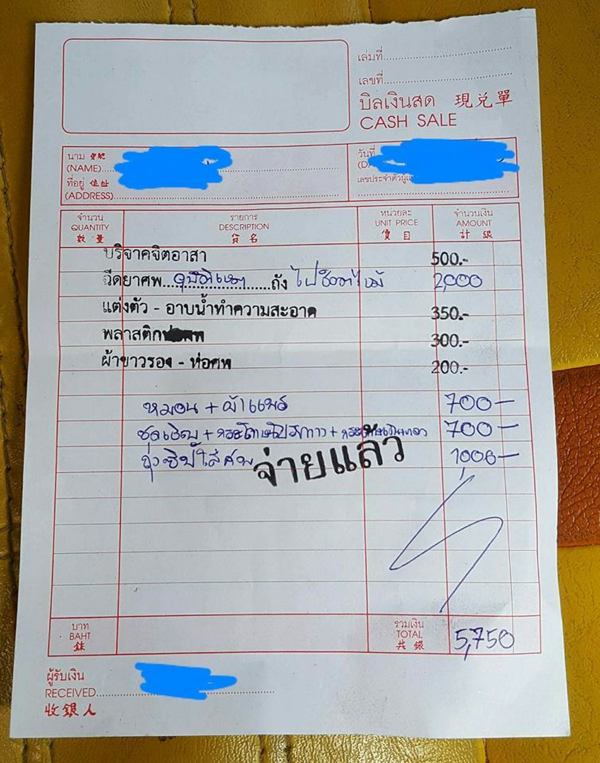 เล่มที่
เลขที่
บิลเงินสด 現兌單
CASH SALE
นาม
(NAME)
ที่อยู่ 住址
(ADDRESS)
วันที่
จำนวน
QUANTITY
數量
รายการ
DESCRIPTION
貨名
หน่วยละ
UNIT PRICE
價目
จำนวนเงิน
AMOUNT
計銀
บริจาคจิตอาสา 500.-
ฉีดยาศพ ถึง 2,000
แต่งตัว - อาบน้ำทำความสะอาด 350.-
พลาสติก 300.-
ผ้าขาวรอง - ห่อศพ 200.-
หมอน + ผ้าแพร 700-
700-
ถุงซิปใส่ศพ 1,000-
จ่ายแล้ว
บาท
BAHT
銖
รวมเงิน
TOTAL
共銀
5,750
ผู้รับเงิน
RECEIVED
收銀人